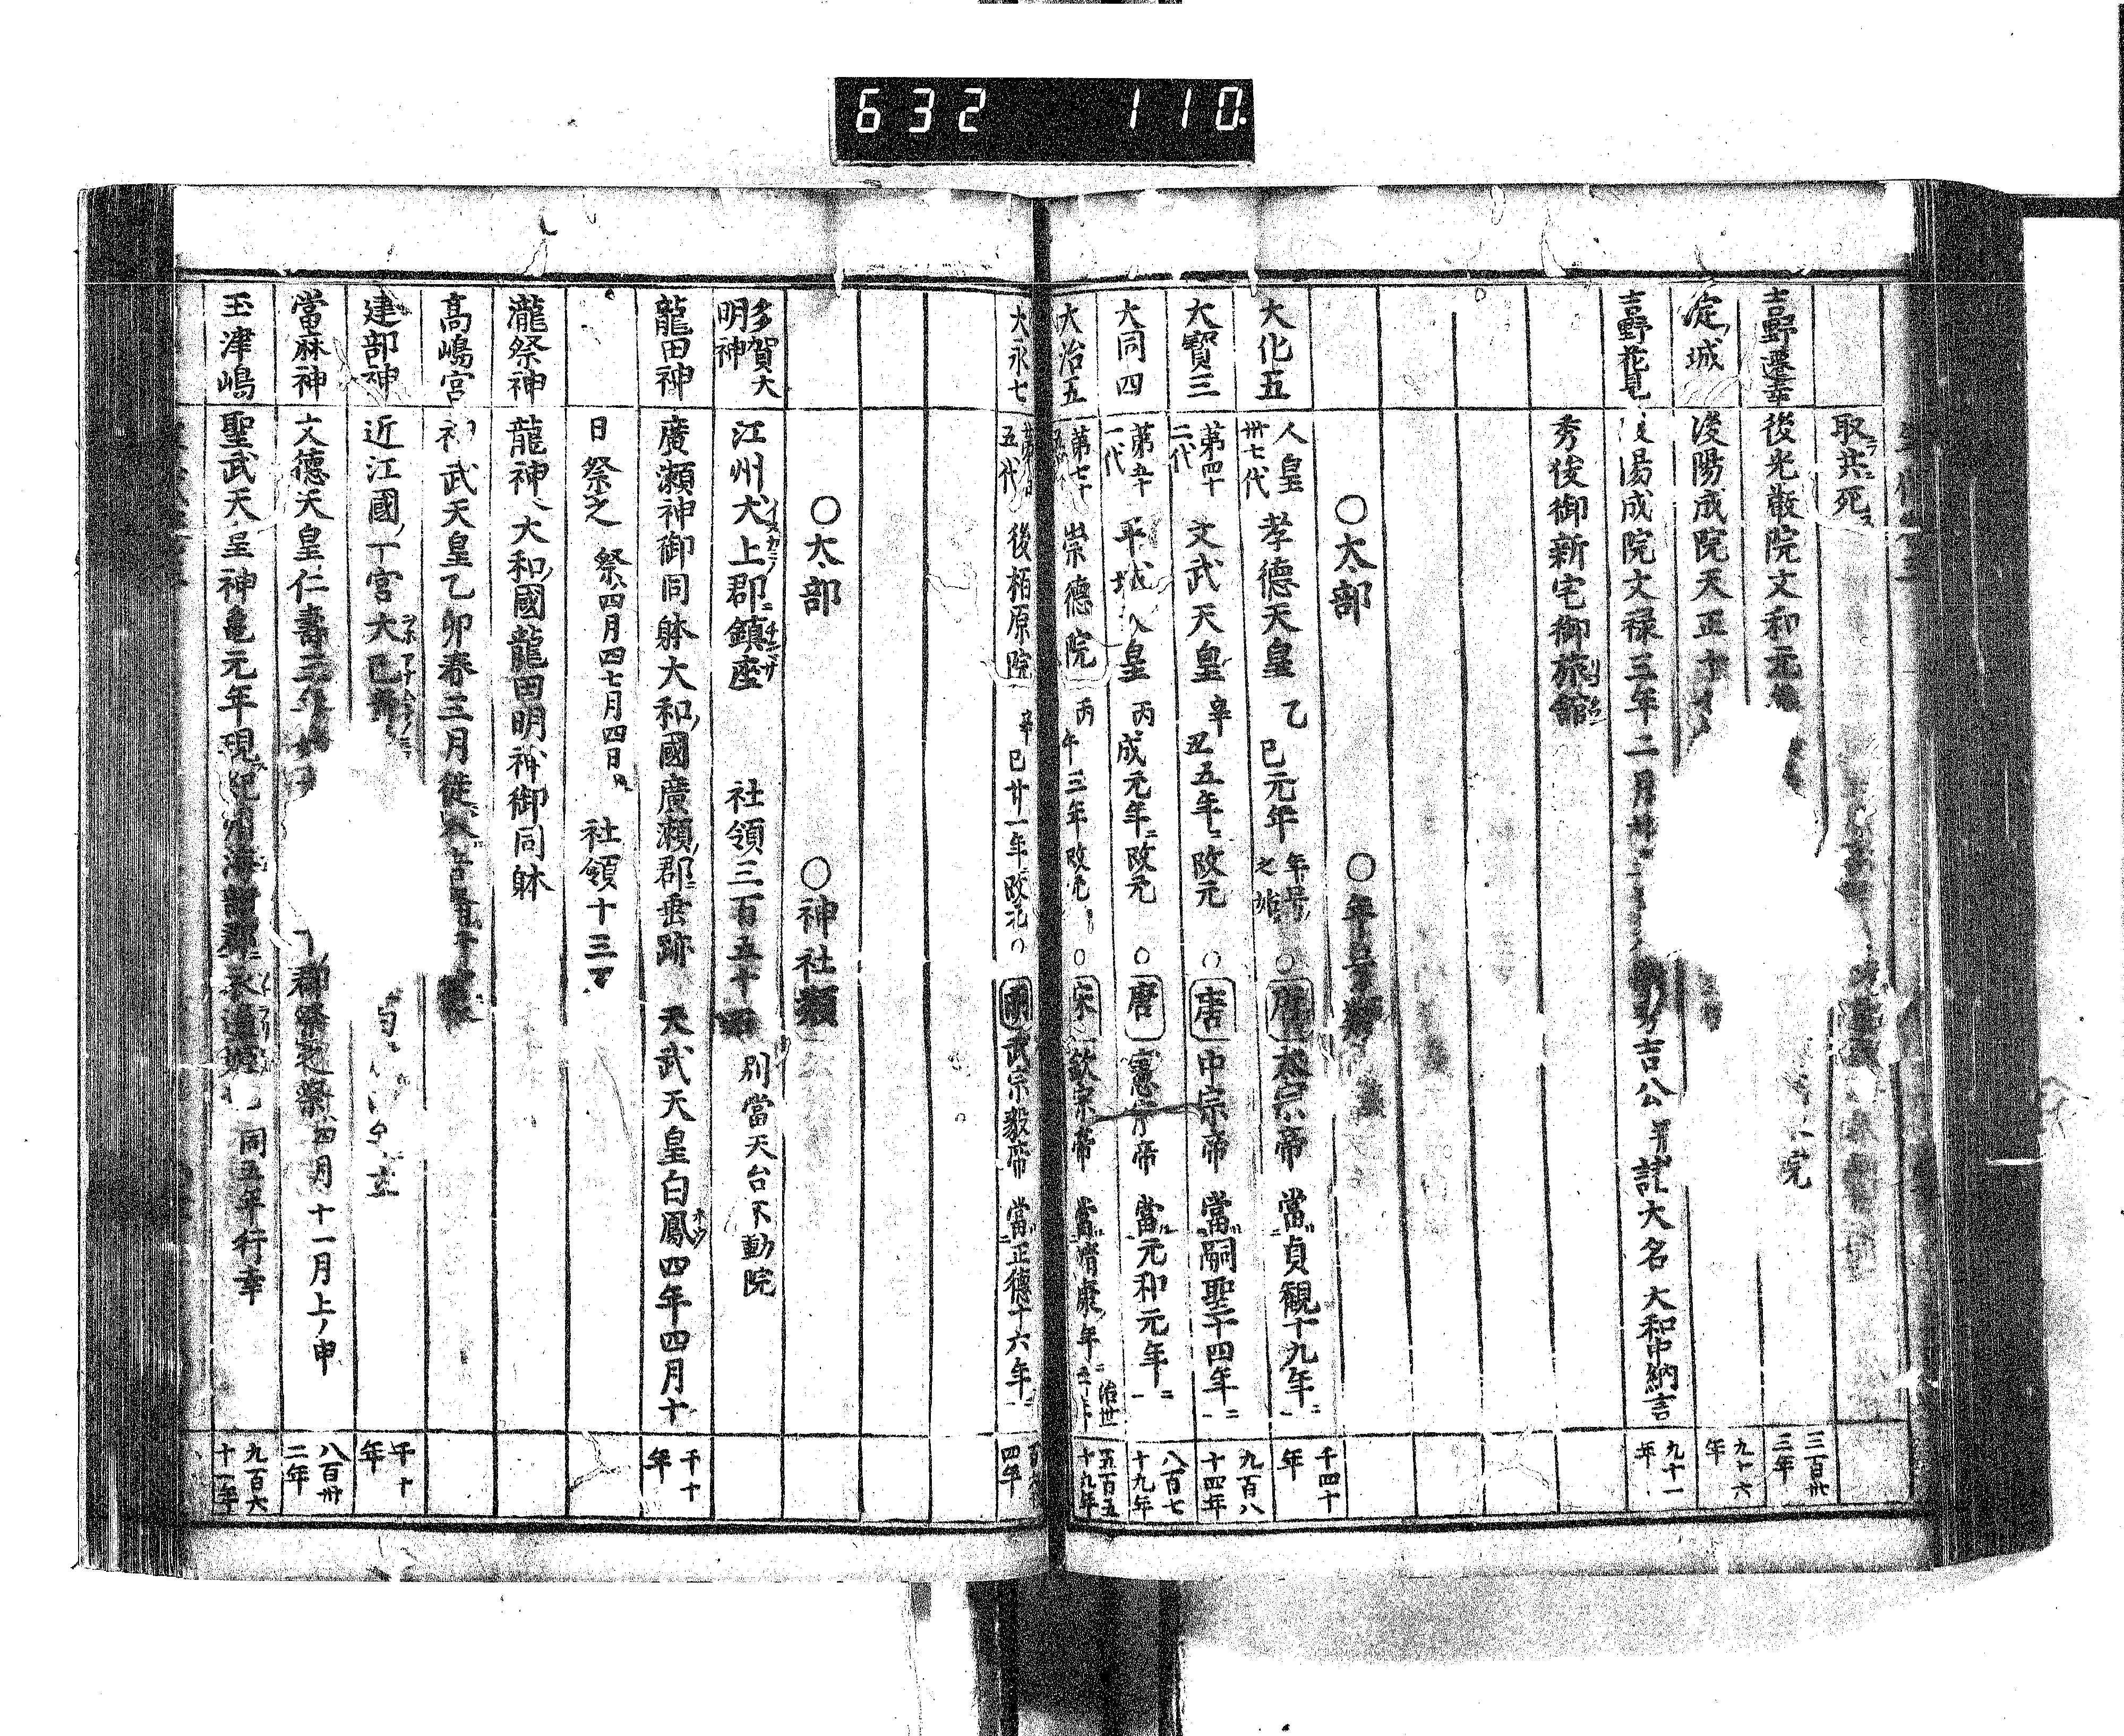 632 110.
取共死
吉野遷幸 後光嚴院文和元 三百卅三年
淀城 後陽成院天正十 九十六年
吉野花見 後陽成院文禄三年二月廿 秀吉公 諸大名 大和中納言 九十一年
秀俊御新宅御旅館
○太部 ○年号類
大化五 人皇卅七代 孝德天皇 乙巳元年 年号之始 ○唐太宗帝 當貞觀十九年 千四十年
大寶三 第四十二代 文武天皇 辛丑五年改元 ○唐中宗帝 當嗣聖十四年 九百八十四年
大同四 第五十一代 平城天皇 丙戌元年改元 ○唐憲宗帝 當元和元年 八百七十九年
大治五 第七十 崇德院 丙午三年改元 ○宋欽宗帝 當靖康年 治世 五百五十九年
大永七 五代 後栢原院 辛巳廿一年改元 ○明武宗毅帝 當正德十六年 四年
○太部 ○神社類
多賀大明神 江州犬上郡鎮座 社領三百五十 別當天台不動院
龍田神 廣瀬神御同躰大和國廣瀬郡垂跡 天武天皇白鳳四年四月十 千十年
日祭之 祭四月四七月四日 社領十三
瀧祭神 龍神大和國龍田明神御同躰
髙嶋宮 神武天皇乙卯春三月從
建部神 近江國一宮大已 千十年
當麻神 文德天皇仁壽三年 郡祭之祭四月十一月上ノ申 八百卅二年
玉津嶋 聖武天皇神亀元年現紀州海部郡 同五年行幸 九百六十一年